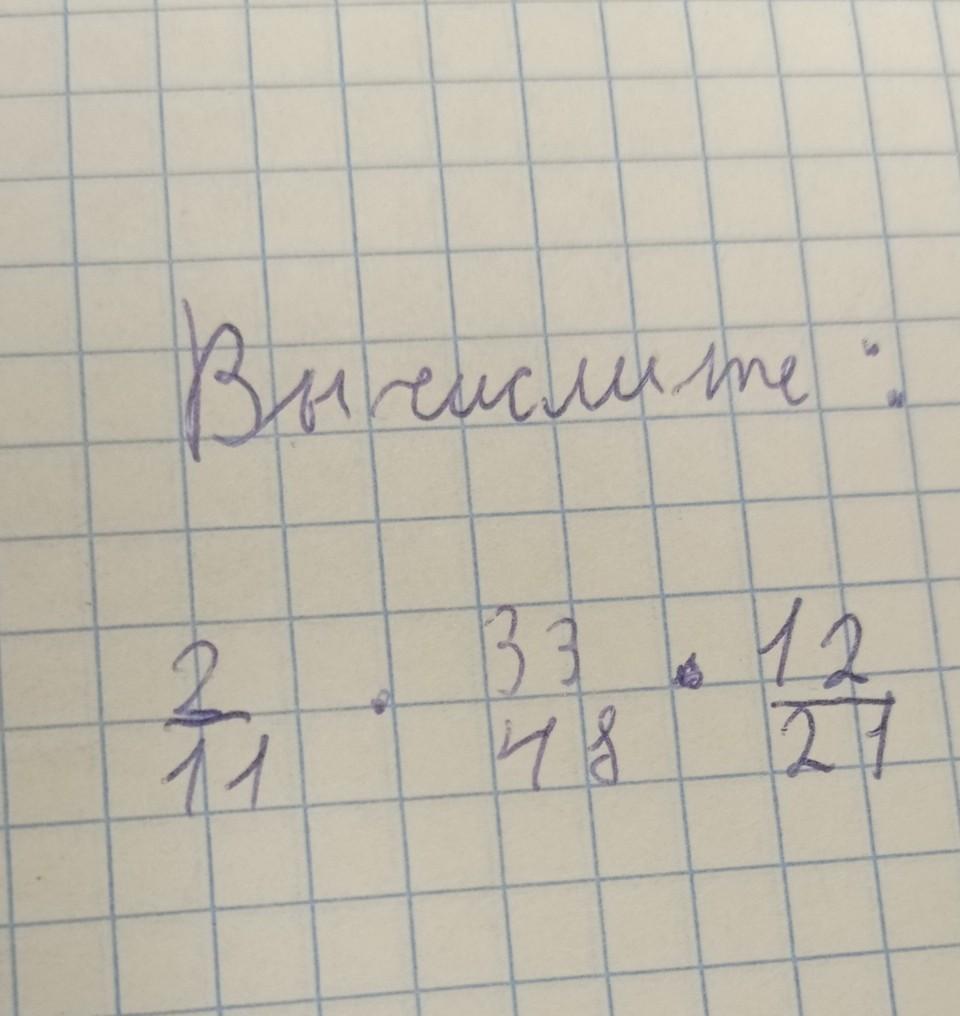 Вычислите:
2/11 · 33/48 · 12/21